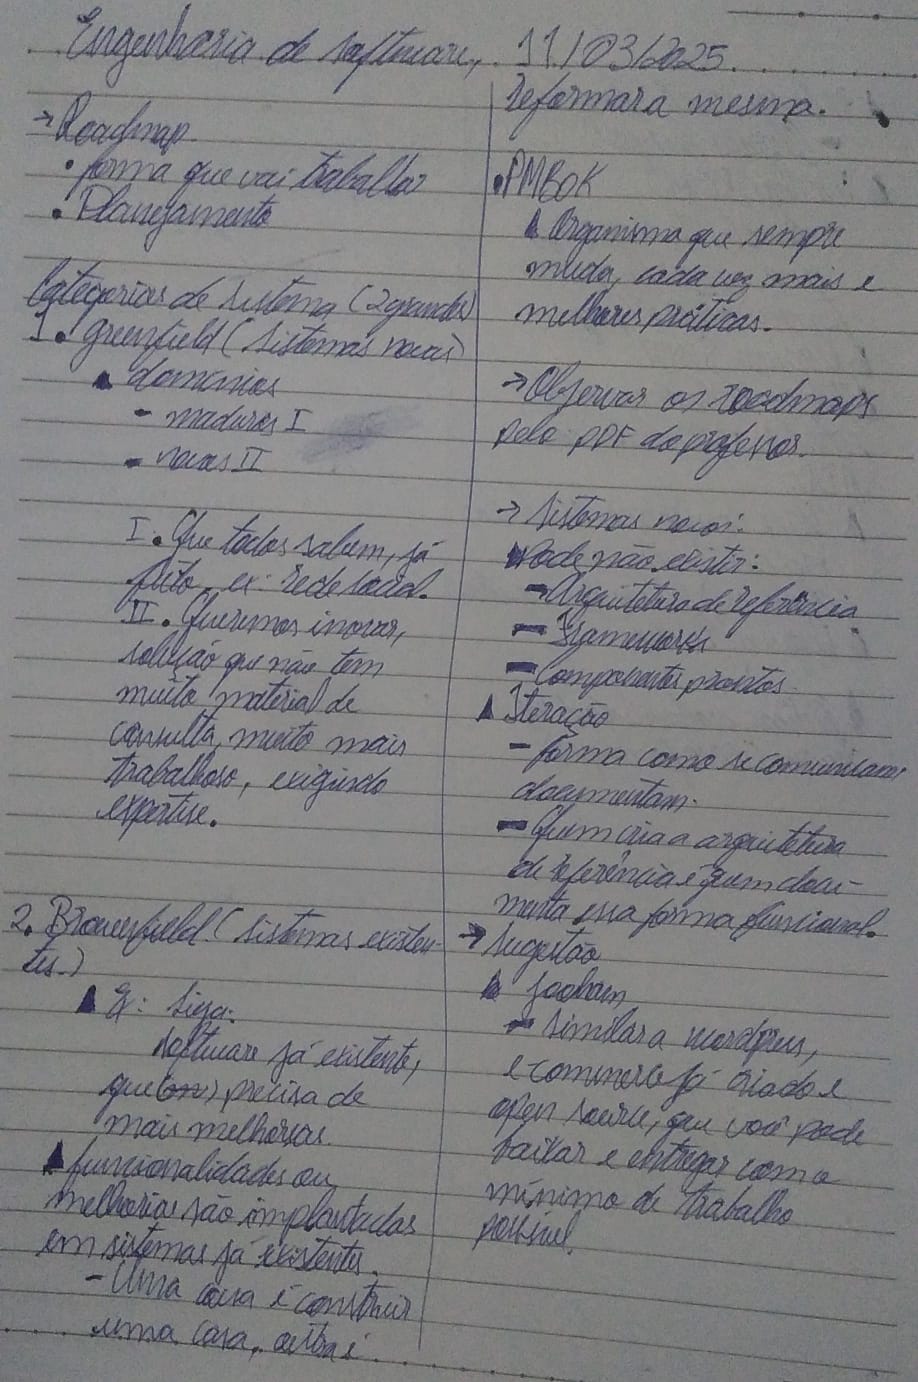 Engenharia de software, 11/03/2025.
→ Roadmap
• forma que vai trabalhar
• Planejamento
Categorias de sistema (2 grandes)
1. greenfield (sistemas novos)
▲ domínios
- maduros I
- novos II
I. Que todos sabem, já
feito, ex: rede social.
II. Queremos inovar,
solução que não tem
muito material de
consulta, muito mais
trabalhoso, exigindo
expertise.
2. Brownfield (sistemas existen-
tes.)
▲ Ex: Siga:
software já existente,
que precisa de
mais melhorias
▲ funcionalidades ou
melhorias são implantadas
em sistemas já existentes.
- Uma coisa é construir
uma casa, outra é
reformar a mesma.
• PMBOK
▲ Organismo que sempre
muda, cada vez mais e
melhores práticas.
→ Observar os roadmaps
pelo PDF do professor.
→ Sistemas novos:
▲ Pode não existir:
- Arquitetura de referência
- Frameworks
- Componentes prontos.
▲ Iteração
- forma como se comunicam,
documentam.
- Quem cria a arquitetura
de referência é quem docu-
menta essa forma funcional.
→ Sugestão
▲
- similar a wordpress,
e-commerce já criado e
open source, que você pode
baixar e entregar com o
mínimo de trabalho
possível.